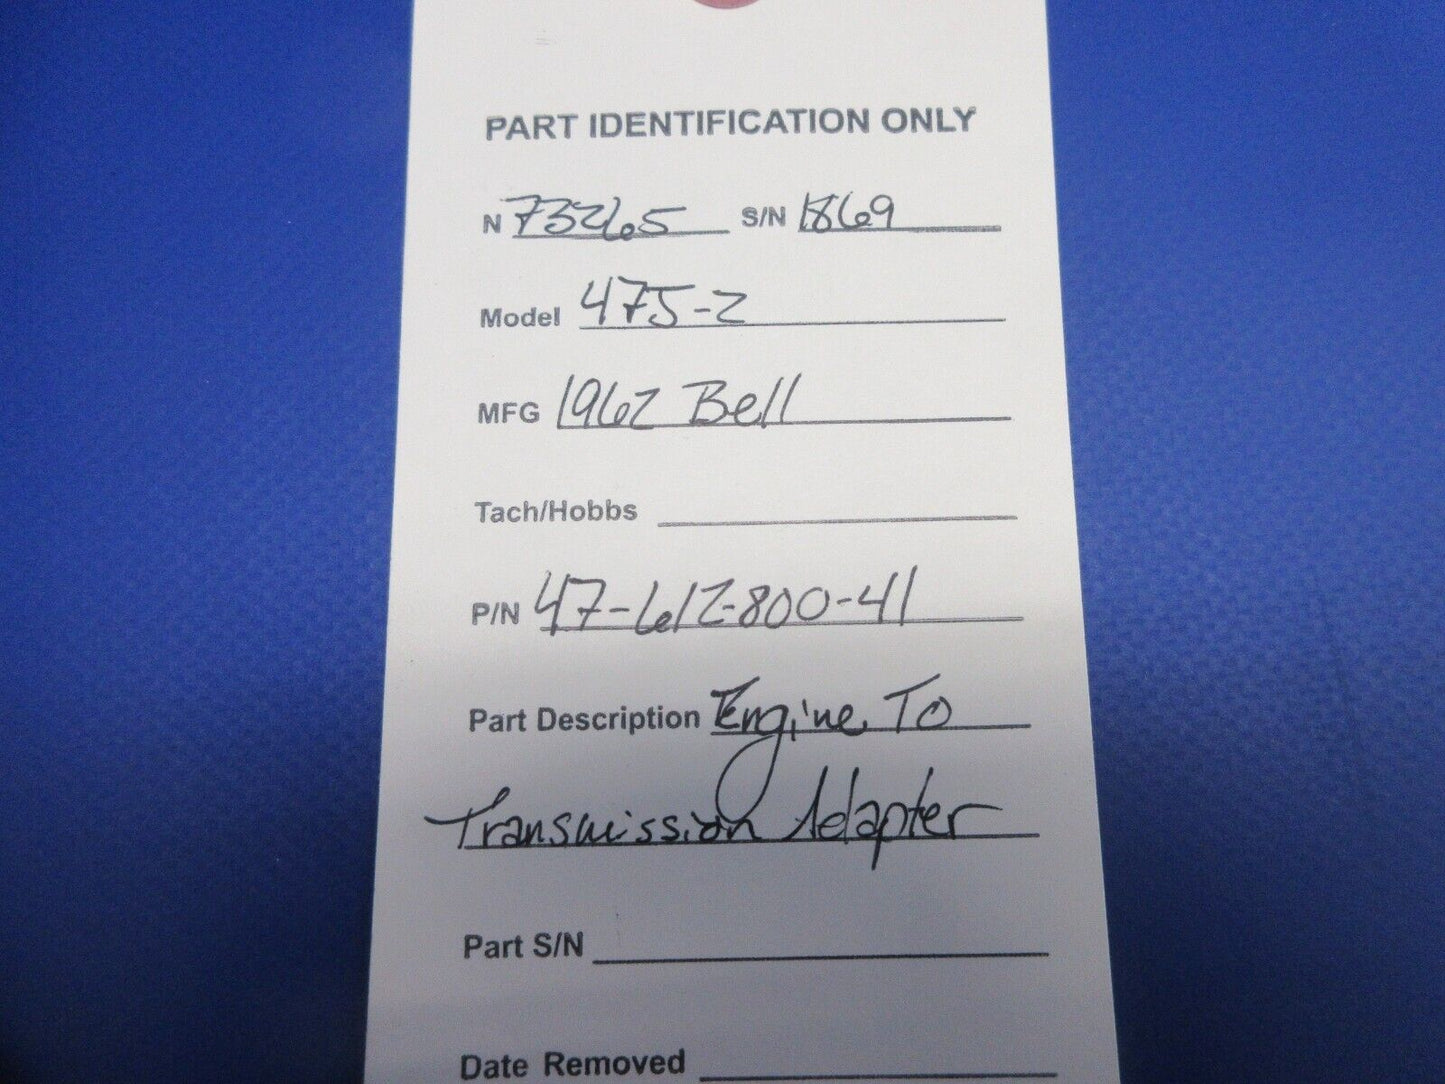 PART IDENTIFICATION ONLY
N 73265 S/N 1869
Model 47J-2
MFG 1962 Bell
Tach/Hobbs
P/N 47-612-800-41
Part Description Engine To
Transmission Adapter
Part S/N
Date Removed